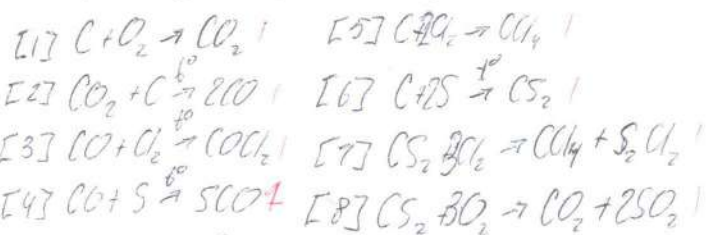 [1] C + O₂ → CO₂
[2] CO₂ + C t°→ 2CO
[3] CO + Cl₂ t°→ COCl₂
[4] CO + S t°→ SCO 1
[5] C + 2Cl₂ → CCl₄
[6] C + 2S t°→ CS₂
[7] CS₂ 3Cl₂ → CCl₄ + S₂Cl₂
[8] CS₂ 3O₂ → CO₂ + 2SO₂